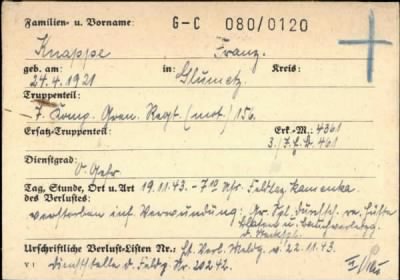 Familien- u. Vorname: G-C 080/0120
Knappe Franz.
geb. am: in: Kreis:
24.4.1921 Glumetz.
Truppenteil:
7. Komp. Gren. Regt. (mot.) 156.
Ersatz-Truppenteil: Erk.-M.: 4361
3./J.E.B. 461
Dienstgrad:
O. Gefr.
Tag, Stunde, Ort u. Art 19.11.43. - 7¹⁰ Uhr Feldlaz. Kamenka
des Verlustes:
verstorben inf. Verwundung: Gr. Spl. durchsch. re. Hüfte
Blasen u.
Urschriftliche Verlust-Listen Nr.: Lt. Verl. Meldg. v. 22.11.43.
VI Dienststelle d. Feldp. Nr. 20242.